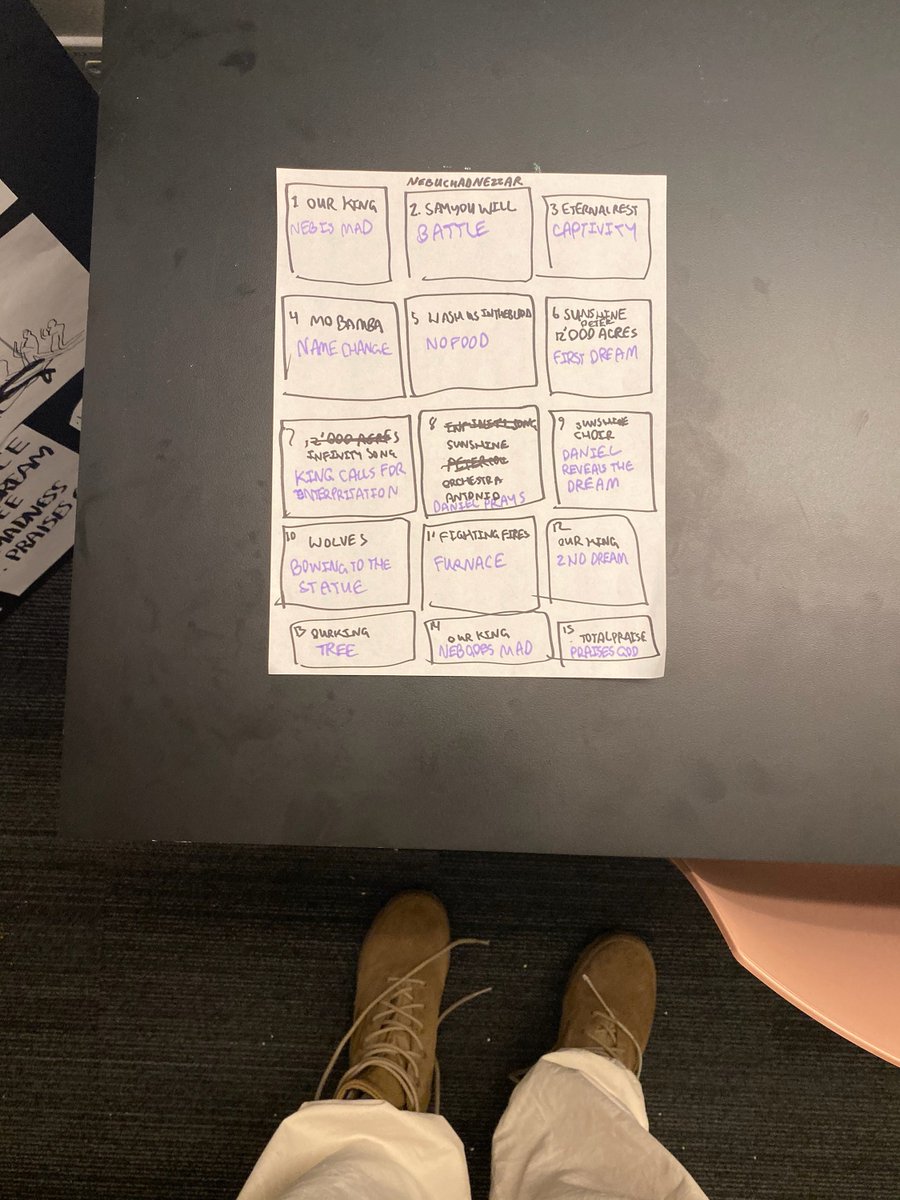 NEBUCHADNEZZAR
1 OUR KING
NEB IS MAD
2. SAMYOU WILL
BATTLE
3 ETERNAL REST
CAPTIVITY
4 MO BAMBA
NAME CHANGE
5 WASH US IN THE BLOOD
NO FOOD
6 SUNSHINE
PETER
12'000 ACRES
FIRST DREAM
7 12'000 ACRES
INFINITY SONG
KING CALLS FOR
INTERPRITATION
8 INFINITY SONG
SUNSHINE
ORCHESTRA
ANTONIO
DANIEL PRAYS
9 SUNSHINE
CHOIR
DANIEL
REVEALS THE
DREAM
10 WOLVES
BOWING TO THE
STATUE
11 FIGHTING FIRES
FURNACE
12
OUR KING
2ND DREAM
13 OUR KING
TREE
14
OUR KING
NEB GOES MAD
15. TOTAL PRAISE
PRAISES GOD
MADNESS
PRAISES